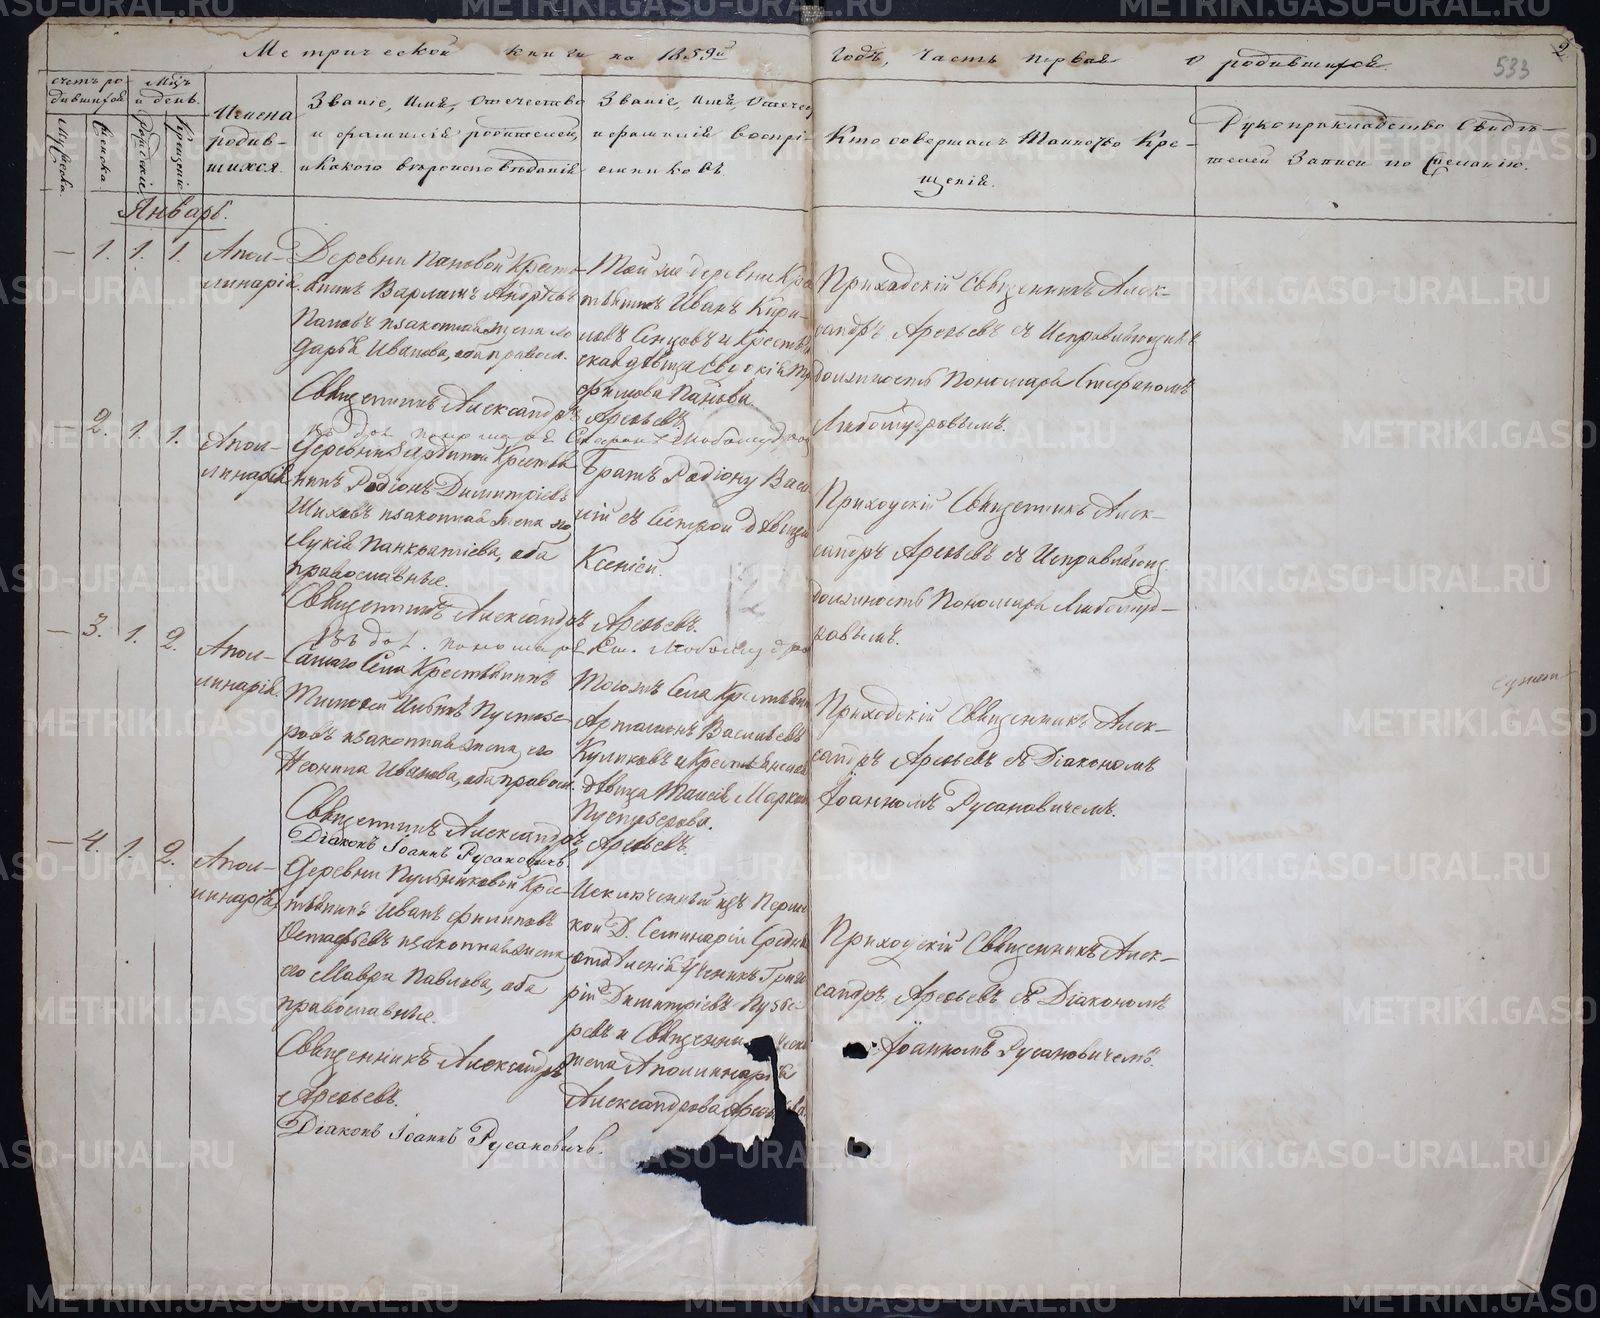 Метрической книги на 1859й годъ, часть первая о родившихся.
2
533
счетъ ро-
дившихся
Мужеска.
Женска.
Мцъ
и день.
Рожденія.
Крещенія.
Имена
родив-
шихся.
Званіе, Имя, Отечество
и фамилія родителей,
и какого вѣроисповѣданія
Званіе, Имя, Отечес
и фамилія воспрі-
емниковъ.
Кто совершалъ Таинство Кре-
щенія.
Рукоприкладство Свидѣ-
телей Записи по Желанію.
Январь.
— 1. 1. 1.
Апол-
линарія.
Деревни Пановой Крест-
янинъ Варламъ Андреевъ
Пановъ и законная жена его
Дарья Иванова, оба правосл.
Священникъ Александръ Арефьевъ.
Той же деревни Кре
стьянинъ Иванъ Кири-
ловъ Сенцовъ и Крестья
ская дѣвица Евдокія
фимова Панова.
Приходскій Священникъ Алек-
сандръ Арефьевъ съ Исправляющимъ
должность Пономаря Стефаномъ
Любомудровымъ.
— 2. 1. 1.
Апол-
линарія
Деревни Крестья
нинъ Родіонъ Димитріевъ
Шиховъ и законная жена его
Лукія Панкратіева, оба
православные.
Священникъ Александръ Арефьевъ.
Братъ Родіону Васи
лій съ Сестрой дѣвицей
Ксеніей.
Приходскій Священникъ Алек-
сандръ Арефьевъ съ Исправляющ.
должность Пономаря Любомуд-
ровымъ.
— 3. 1. 2.
Апол-
линарія.
Самаго Села Крестьянинъ
Тимофей Пустозе-
ровъ и законная жена его
Неонила Иванова, оба правосл.
Священникъ Александръ Арефьевъ.
Діаконъ Іоаннъ Русановичъ
Тогожъ Села Крестьянинъ
Артамонъ Васильевъ
Куликовъ и Крестьянская
дѣвица Таисія Маркова
Пустозерова.
Приходскій Священникъ Алек-
сандръ Арефьевъ съ Діакономъ
Іоанномъ Русановичемъ.
— 4. 1. 2.
Апол-
линарія
Деревни Крес-
тьянинъ Иванъ Филиповъ
Остафьевъ и законная жена
его Мавра Павлова, оба
православные.
Священникъ Александръ
Арефьевъ.
Діаконъ Іоаннъ Русановичъ.
Исключенный изъ Перм
кой Д. Семинаріи Средня
отдѣленія Ученикъ Григо
рій Димитріевъ
ревъ и Священни
жена Аполлинарія
Александрова
Приходскій Священникъ Алек-
сандръ Арефьевъ съ Діакономъ
Іоанномъ Русановичемъ.
METRIKI.GASO-URAL.RU